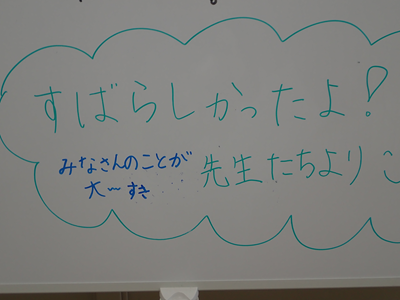 すばらしかったよ!
みなさんのことが
大〜すき
先生たちより